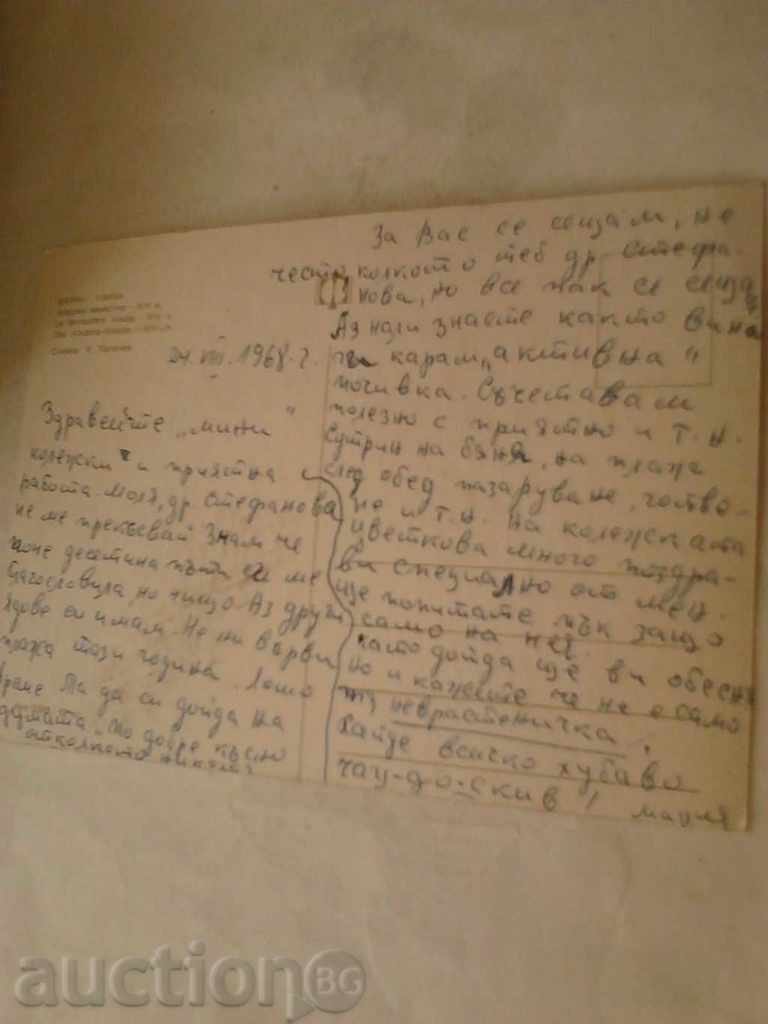 24.VIII.1968 г.
Здравейте „мини"
колежки" и приятна
работа. Моля, др. Стефанова
не ме прекъсвай Знам че
поне десетина пъти си ме
благословила, но нищо. Аз други
ядове си имам. Не ни върви
плажа тази година. Лошо
време Па да си дойда на
"По добре късно
отколкото никога
За Вас се сещам, не
често колкото теб др. Стефа-
нова, но все пак се сещам
Аз нали знаете както вина
ги карам „активна"
почивка. Съчетавам
полезно с приятно и т.н.
Сутрин на баня, на плаж
след обед пазаруване, готво-
не и т.н. На колежката
Цветкова много поздра-
ви специално от мен.
Ще попитате пък защо
само на нея.
като дойда ще ви обясня
но и кажете че не е само
тя неврастеничка!
Хайде всичко хубаво
чау-до-скив!
auctionBG